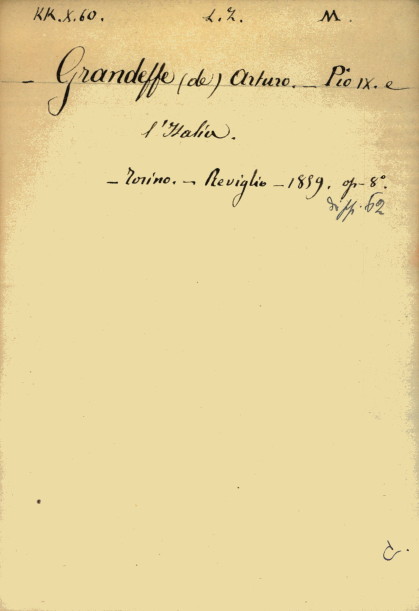 KK.X.60. L.Z. M.
– Grandeffe (de) Arturo. – Pio IX. e
l'Italia.
– Torino. – Reviglio – 1859. op– 8°.
di pp. 62
C.